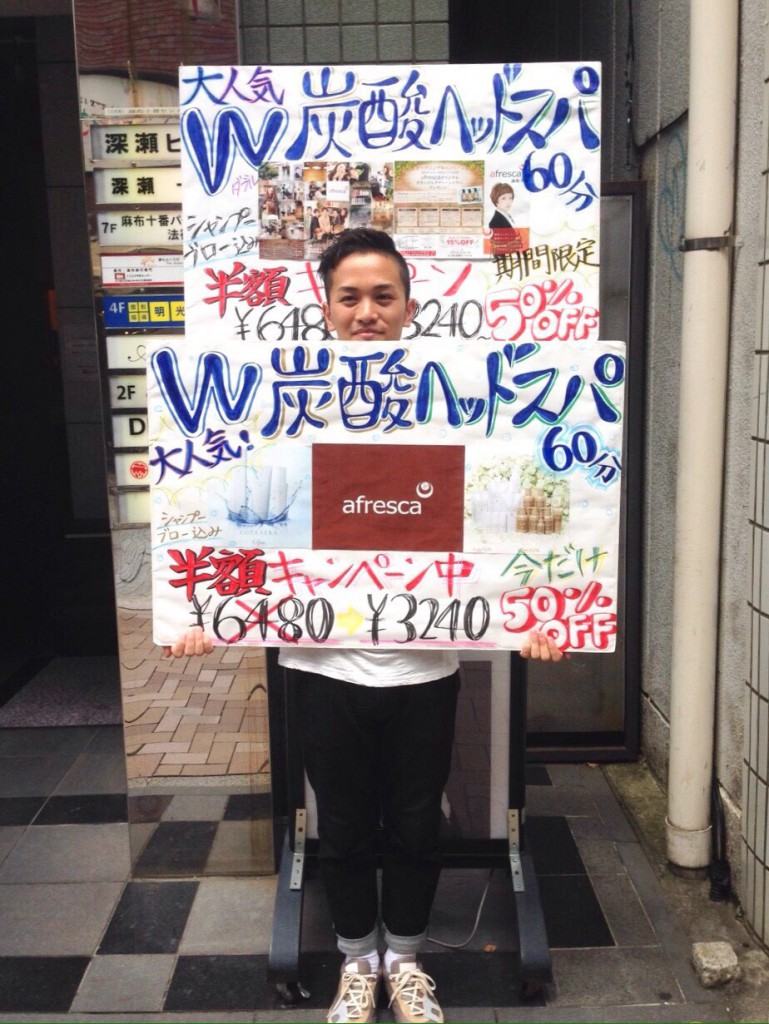 大人気
W炭酸ヘッドスパ
60分
ダブル
afresca
afresca
15%OFF
シャンプー
ブロー込み
期間限定
半額キャンペーン
¥6480
3240
50%OFF
W炭酸ヘッドスパ
大人気!
60分
afresca
シャンプー
ブロー込み
半額キャンペーン中
今だけ
¥6480→¥3240
50%OFF
深瀬ビ
深瀬
7F
麻布十番パ
法
4F
明光
2F
D